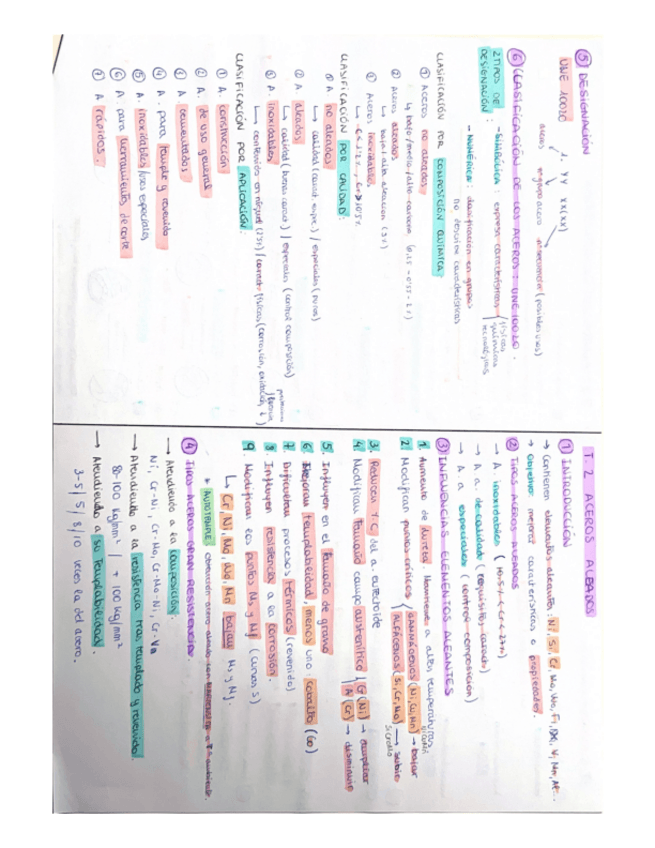 T.2 ACEROS ALEADOS
① INTRODUCCIÓN
→ Contienen elementos aleantes: Ni, Si, Cr, Mo, Wo, Ti, V, Mn, Al...
→ Objetivo: mejorar características o propiedades.
② TIPOS ACEROS ALEADOS
→ A. inoxidables
→ A.a. de calidad (requisitos caract)
→ A.a. especiales (control composición)
③ INFLUENCIAS ELEMENTOS ALEANTES
1. Aumento de dureza. Mantienen a altas temperaturas
2. Modifican puntos críticos
GAMMÁGENOS (Ni, Cu, Mn) → bajar
ALFÁGENOS (Si, Cr, Mo) → subir
3. Reducen % C del a. eutectoide
4. Modifican tamaño campo austenítico
G (Ni) → ampliar
A (Cr) → disminuir
5. Influyen en el tamaño de grano
6. Mejoran templabilidad, menos uno cobalto (Co)
7. Dificultan procesos térmicos (revenido)
8. Influyen resistencia a la corrosión.
9. Modifican los puntos Ms y Mf (curvas S)
↳ Cr, Ni, Mo, Wo, Mn bajan Ms y Mf.
④ TIPOS ACEROS GRAN RESISTENCIA
AUTOTEMPLE: obtención acero aleado con a Tª ambiente.
→ Atendiendo a la composición.
Ni, Cr-Ni, Cr-Mo, Cr-Mo-Ni, Cr-Va
→ Atendiendo a la resistencia tras templado y revenido.
80-100 kg/mm² / + 100 kg/mm²
→ Atendiendo a su templabilidad.
3-5 / 5 / 8 / 10 veces la del acero.
⑤ DESIGNACIÓN
UNE 10020
1. YY XX(XX)
acero grupo acero numeración (posibles usos)
⑥ CLASIFICACIÓN DE LOS ACEROS: UNE 10020.
2 TIPOS DE DESIGNACIÓN:
- SIMBÓLICA: expresa características
físicas
químicas
tecnológicas
- NUMÉRICA: clasificación en grupos
no describir características
CLASIFICACIÓN POR COMPOSICIÓN QUÍMICA
① Aceros no aleados
↳ bajo/medio/alto carbono
② Aceros aleados
↳ baja/alta aleación (5%)
③ Aceros inoxidables.
↳ C ≤ 1.2%, Cr ≥ 10'5%
CLASIFICACIÓN POR CALIDAD:
① A. no aleados
↳ calidad (caract. espec.) / especiales (puros)
② A. aleados
↳ calidad (buenas caract) / especiales (control composición)
③ A. inoxidables
↳ contenido en níquel / caract. físicas (corrosión, oxidación,
CLASIFICACIÓN POR APLICACIÓN:
① A. construcción
② A. de uso general
③ A. cementados
④ A. para temple y revenido
⑤ A. inoxidables/usos especiales
⑥ A. para herramientas de corte
⑦ A. rápidos.